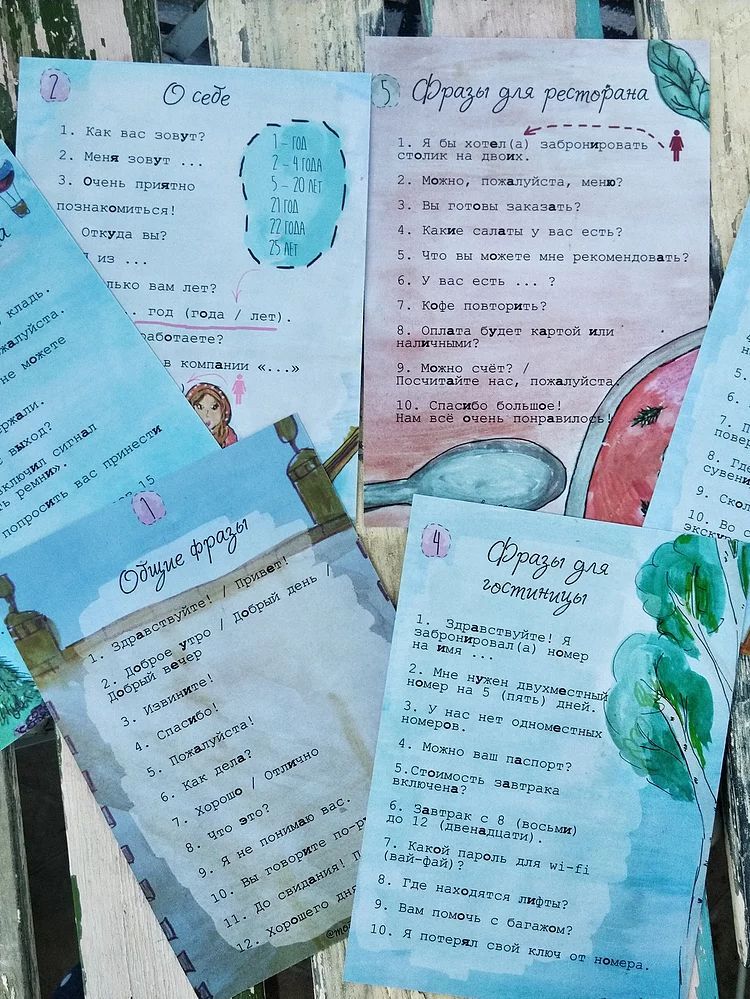 2
О себе
1. Как вас зовут?
2. Меня зовут ...
3. Очень приятно
познакомиться!
Откуда вы?
из ...
вам лет?
год (года / лет).
в компании «...»
1 – ГОД
2 – 4 ГОДА
5 – 20 ЛЕТ
21 ГОД
22 ГОДА
25 ЛЕТ
5
Фразы для ресторана
1. Я бы хотел(а) забронировать
столик на двоих.
2. Можно, пожалуйста, меню?
3. Вы готовы заказать?
4. Какие салаты у вас есть?
5. Что вы можете мне рекомендовать?
6. У вас есть ... ?
7. Кофе повторить?
8. Оплата будет картой или
наличными?
9. Можно счёт? /
Посчитайте нас, пожалуйста.
10. Спасибо большое!
Нам всё очень понравилось!
кладь.
не можете
выход?
сигнал
ремни».
попросить вас принести
15
1
Общие фразы
1. Здравствуйте! / Привет!
2. Доброе утро / Добрый день /
Добрый вечер
3. Извините!
4. Спасибо!
5. Пожалуйста!
6. Как дела?
7. Хорошо / Отлично
8. Что это?
9. Я не понимаю вас.
10. Вы говорите по-р
11. До свидания!
12. Хорошего дня
4
Фразы для
гостиницы
1. Здравствуйте! Я
забронировал(а) номер
на имя ...
2. Мне нужен двухместный
номер на 5 (пять) дней.
3. У нас нет одноместных
номеров.
4. Можно ваш паспорт?
5.Стоимость завтрака
включена?
6. Завтрак с 8 (восьми)
до 12 (двенадцати).
7. Какой пароль для wi-fi
(вай-фай)?
8. Где находятся лифты?
9. Вам помочь с багажом?
10. Я потерял свой ключ от номера.
4
5.
6.
7.
8. Где
9.
10. Во